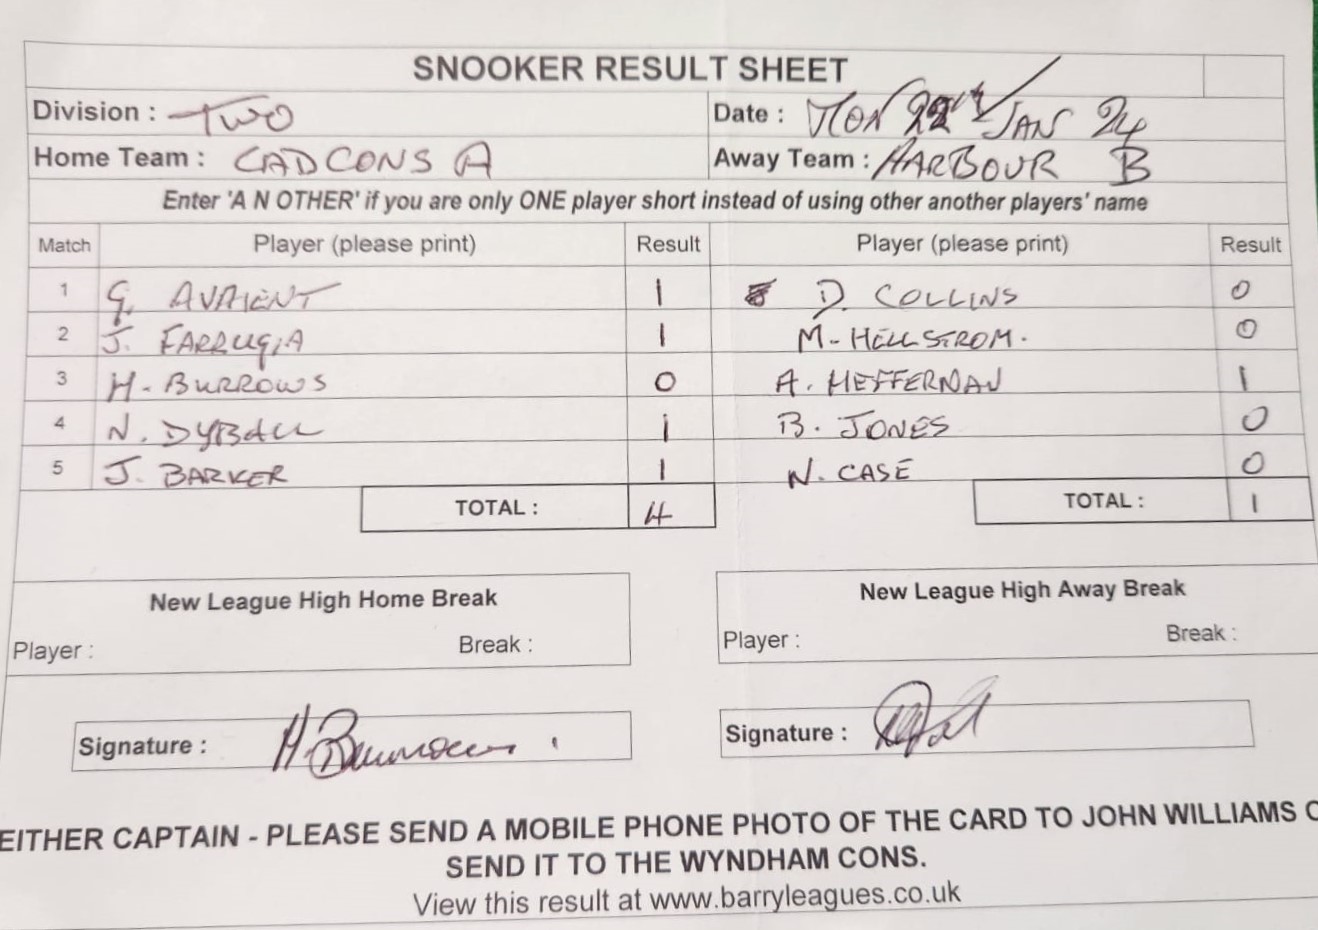 SNOOKER RESULT SHEET
Division : TWO Date : MON 22nd JAN 24
Home Team : CADCONS A Away Team : HARBOUR B
Enter 'A N OTHER' if you are only ONE player short instead of using other another players' name
Match Player (please print) Result Player (please print) Result
1 G. AVAIENT 1 D. COLLINS 0
2 J. FARRUGIA 1 M. HELLSTROM. 0
3 H. BURROWS 0 A. HEFFERNAN 1
4 N. DYBALL 1 B. JONES 0
5 J. BARKER 1 N. CASE 0
TOTAL : 4 TOTAL : 1
New League High Home Break New League High Away Break
Player : Break : Player : Break :
Signature : H. Burrows Signature :
EITHER CAPTAIN - PLEASE SEND A MOBILE PHONE PHOTO OF THE CARD TO JOHN WILLIAMS
SEND IT TO THE WYNDHAM CONS.
View this result at www.barryleagues.co.uk